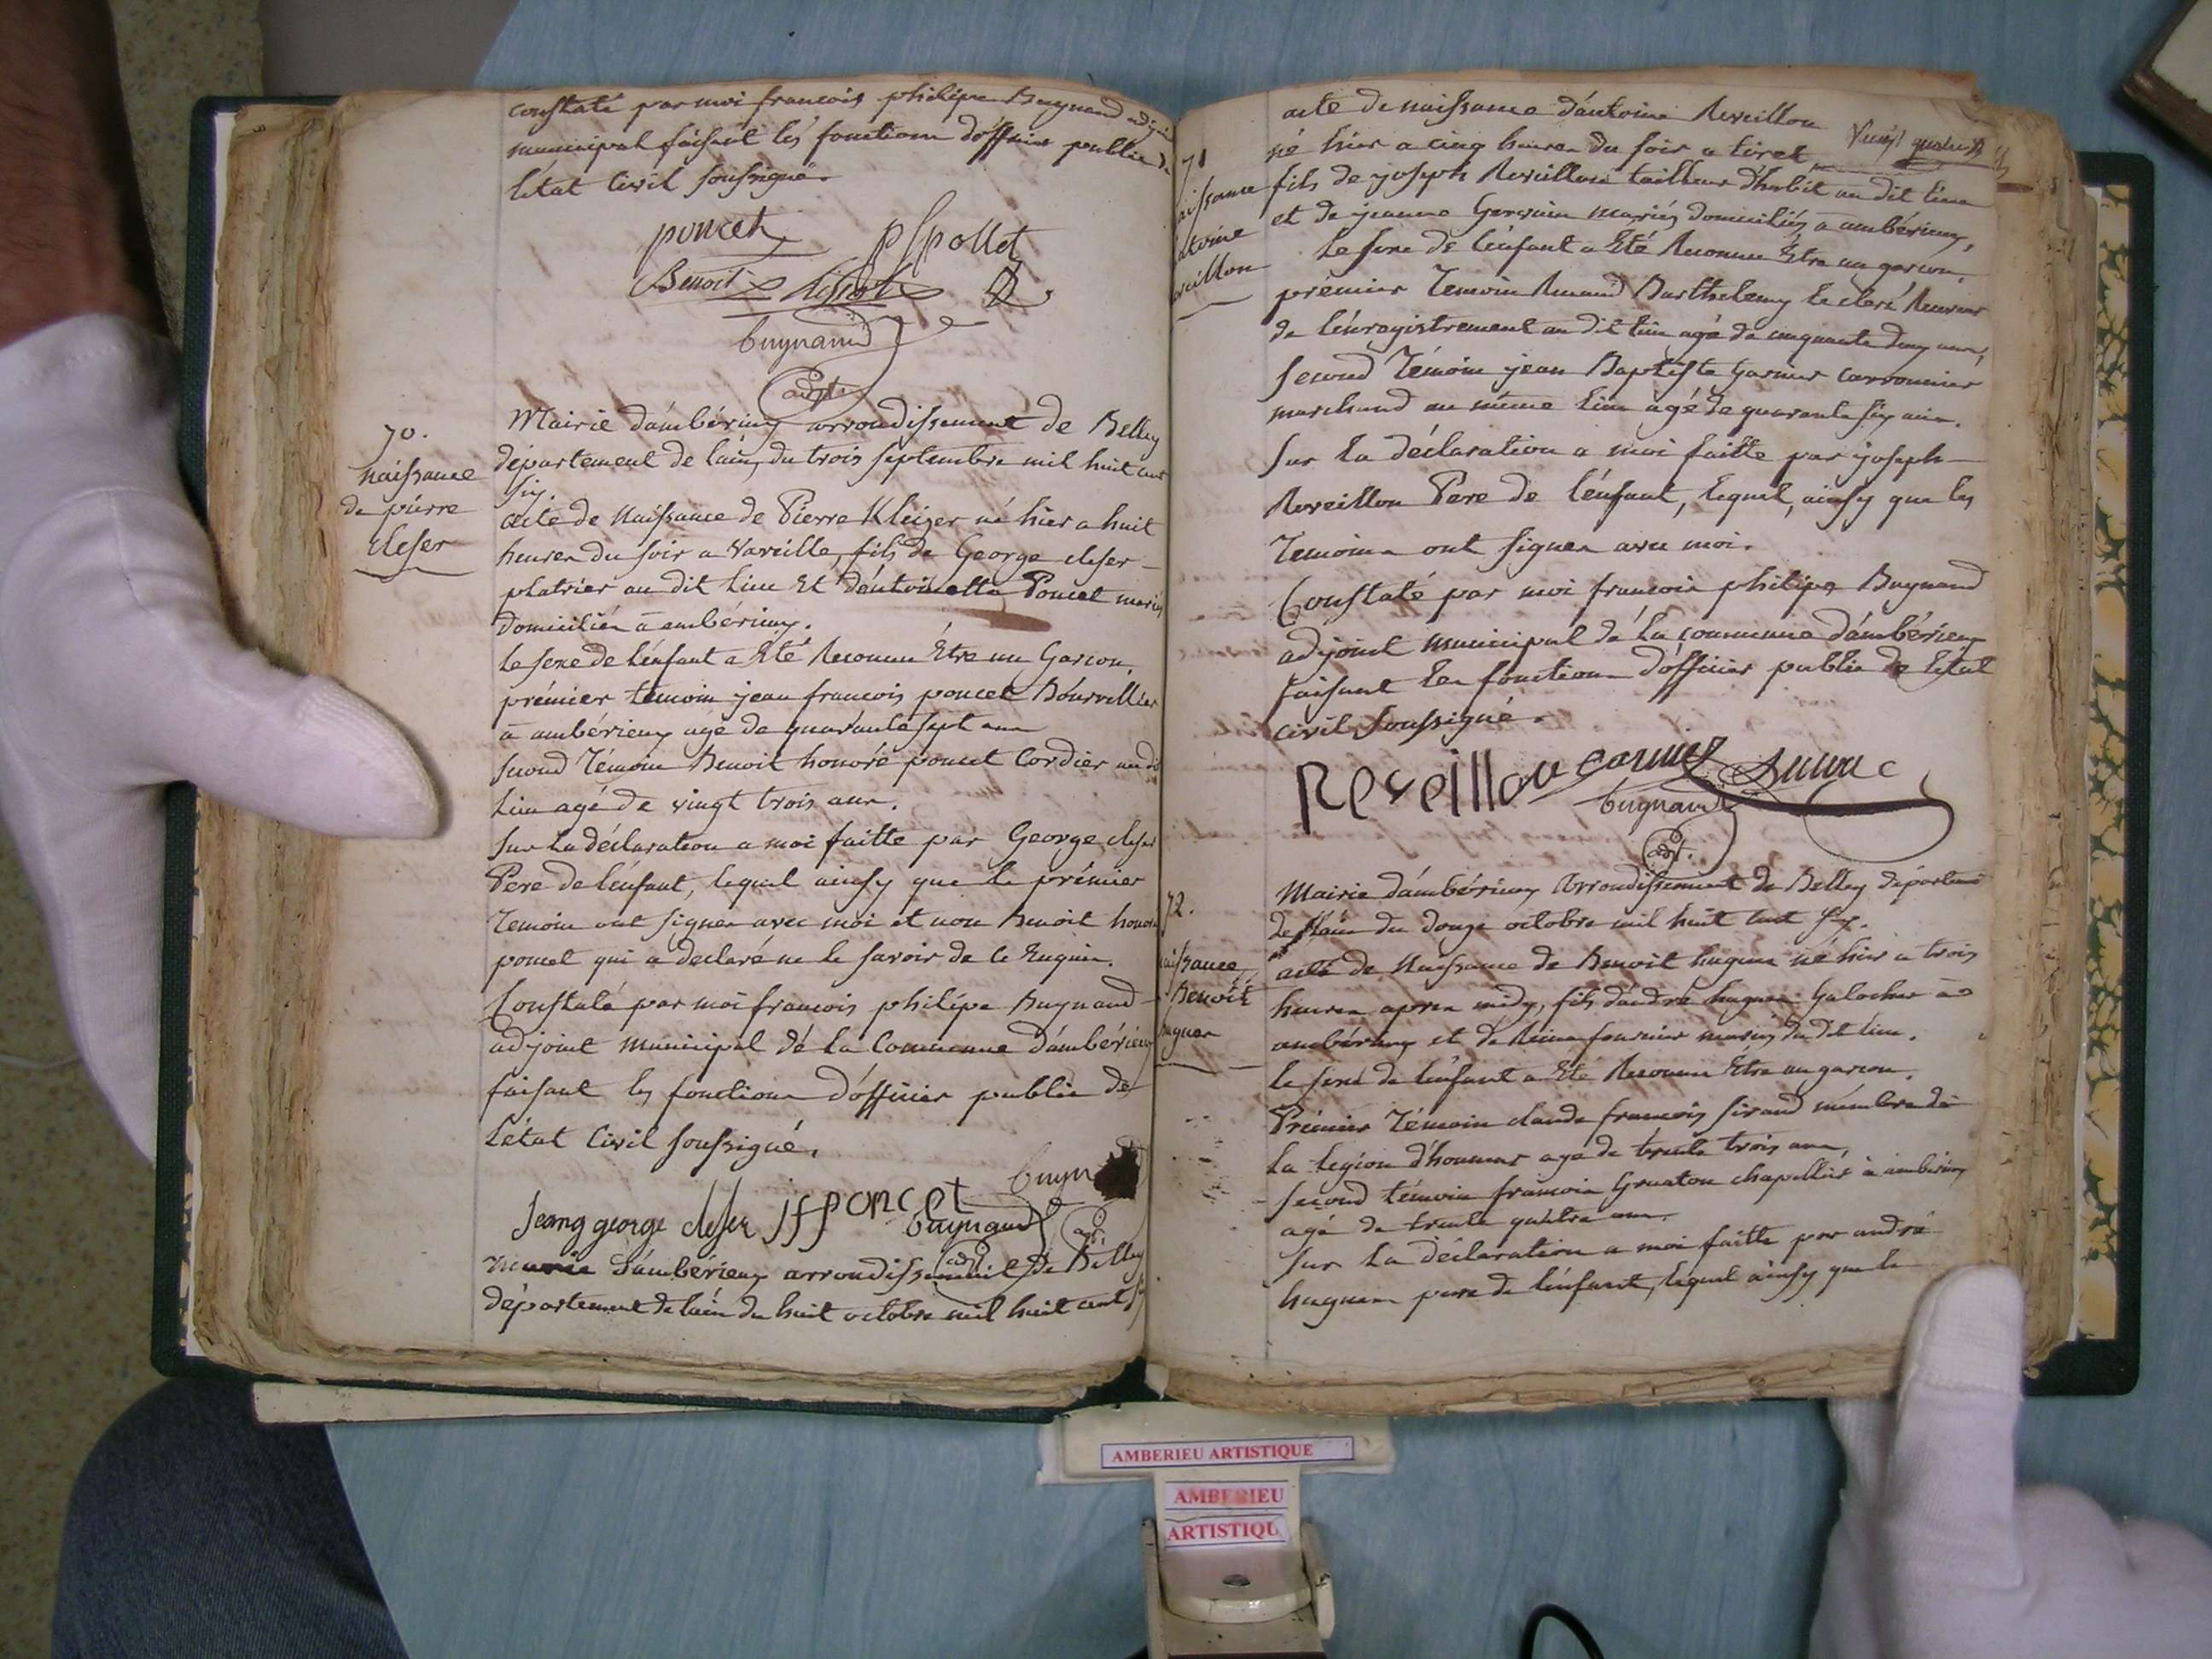 constaté par moi francois philipe Bugnand adjoint
municipal faisant les fonctions d'officier public de
létat Civil soussigné.
poncet
p f pollet
Benoit
bugnand
adjt
70.
naissance
de pierre
cleser
Mairie d'ambérieux arrondissement de Belley
département de lain, du trois septembre mil huit cent
six.
acte de Naissance de Pierre Kleizer né hier a huit
heures du soir a Vareille, fils de George cleser
platrier au dit lieu Et d'antoinette Poncet mariés
domiciliés a ambérieux.
le sexe de lénfant a Eté Reconnu Etre un Garcon,
prémier temoin jean francois poncet Bourrellier
a ambérieux agé de quarante sept ans
second Témoin Benoit honoré poncet Cordier au dit
lieu agé de vingt trois ans.
sur la déclaration a moi faitte par George cleser
Pere de lénfant, lequel ainsy que le prémier
Temoin ont signer avec moi et non Benoit honoré
poncet qui a declaré ne le savoir de ce Enquis.
Constaté par moi francois philipe Bugnand
adjoint municipal dé la Commune d'ambérieux
faisant les fonctions d'officier public de
Létat Civil soussigné.
Jeang george cleser jff poncet bugnand
adjt
Mairie d'ambérieux arrondissement de Belley
département de lain du huit octobre mil huit cent six
Vingt quatre
71
aissance
antoine
eveillon
acte de naissance d'antoine Reveillon
né hier a cinq heures du soir a tiret
fils de joseph Reveillon tailleur d'habit au dit lieu
et de jeanne Gervain mariés domiciliés a ambérieux,
Le sexe de lénfant a Eté Reconnu Etre un garcon,
prémier Temoin Renaud Barthelemy Leclerc Receveur
de lénregistrement au dit lieu agé de cinquante deux ans,
second Témoin jean Baptiste Garnier
marchand au même lieu agé de quarante six ans.
sur la déclaration a moi faitte par joseph
Reveillon Pere de lénfant, lequel, ainsy que les
Temoins ont signer avec moi.
Constaté par moi francois philipe Bugnand
adjoint municipal dé la commune d'ambérieux
faisant les fonctions d'officier public de Létat
civil soussigné.
Reveillon garnier
bugnand
adjt.
72.
aissance
Benoit
hugues
Mairie d'ambérieux Arrondissement de Belley départemt
de lain du douze octobre mil huit cent six.
acte de Naissance de Benoit hugues né hier a trois
heures apres midy, fils d'andré hugues Galocher a
ambérieux et de Reine fournier mariés du dit lieu.
le sexe de lénfant a Eté Reconnu Etre un garcon.
Prémier Témoin claude francois sirand membre de
la legion d'honneur agé de trente trois ans,
second témoin francois Gruaton chapellier à ambérieux
agé de trente quatre ans.
sur la déclaration a moi faitte par andré
hugues pere de lénfant, lequel ainsy que le
AMBERIEU ARTISTIQUE
AMBERIEU
ARTISTIQU